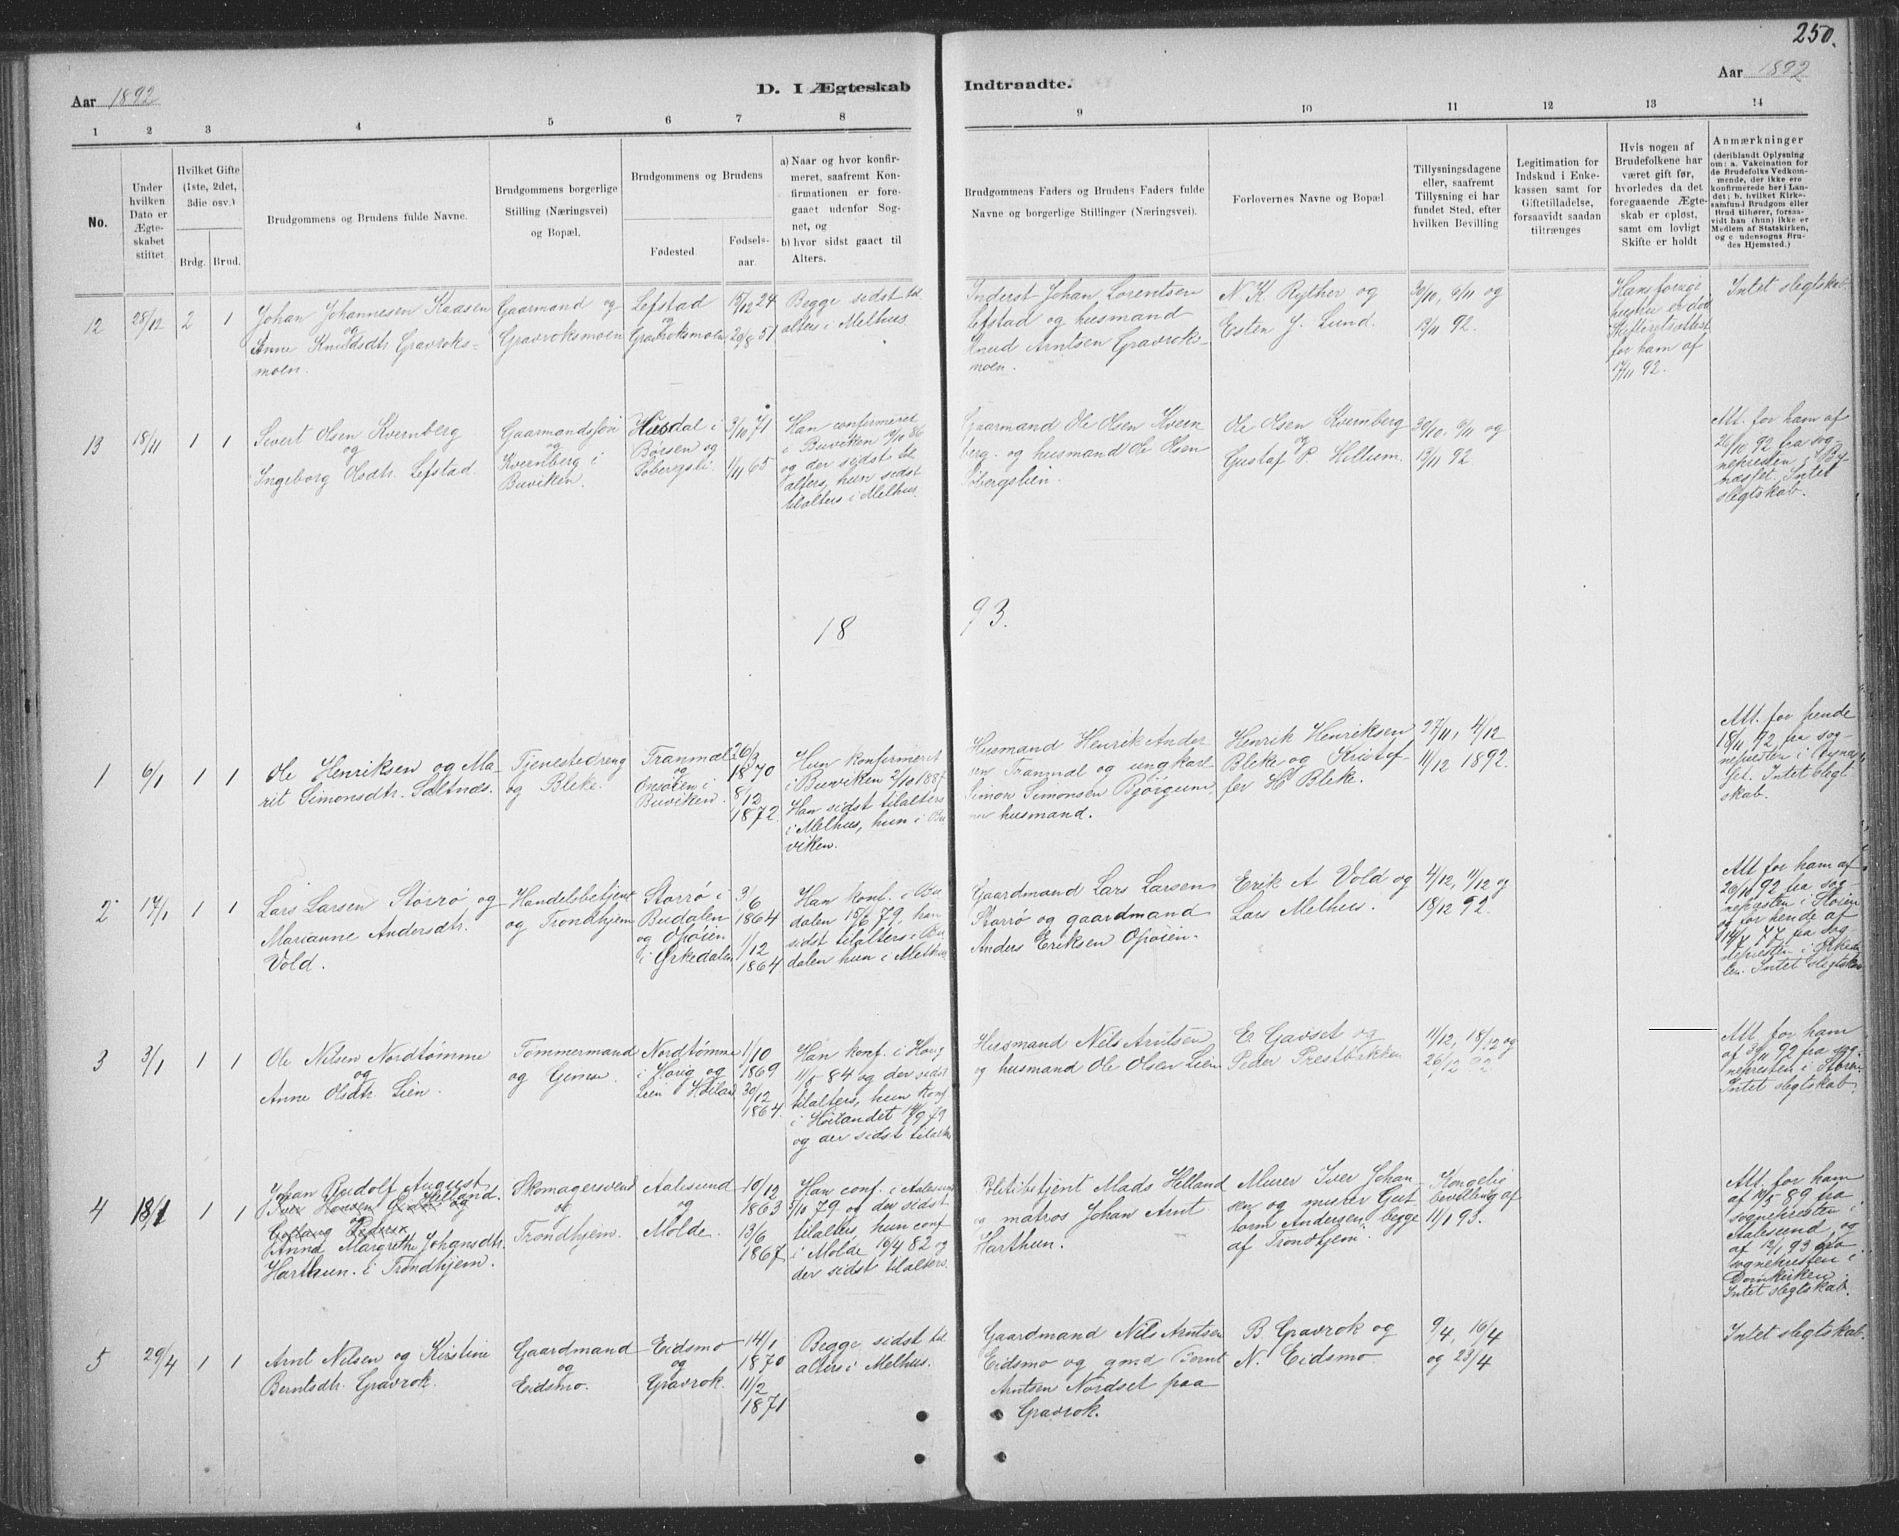 250.
Aar 1892
D. I Ægteskab
Indtraadte.
Aar 1892
1 2 3 4 5 6 7 8 9 10 11 12 13 14
No.
Under
hvilken
Dato er
Ægte-
skabet
stiftet
Hvilket Gifte
(1ste, 2det,
3die osv.)
Brdg. Brud.
Brudgommens og Brudens fulde Navne.
Brudgommens borgerlige
Stilling (Næringsvei)
og Bopæl.
Brudgommens og Brudens
Fødested.
Fødsels-
aar.
a) Naar og hvor konfir-
meret, saafremt Kon-
firmationen er fore-
gaaet udenfor Sog-
net, og
b) hvor sidst gaaet til
Alters.
Brudgommens Faders og Brudens Faders fulde
Navne og borgerlige Stillinger (Næringsvei).
Forlovernes Navne og Bopæl.
Tillysningsdagene
eller, saafremt
Tillysning ei har
fundet Sted, efter
hvilken Bevilling
Legitimation for
Indskud i Enke-
kassen samt for
Giftetilladelse,
forsaavidt saadan
tiltrænges
Hvis nogen af
Brudefolkene har
været gift før,
hvorledes da det
foregaaende Ægte-
skab er opløst,
samt om lovligt
Skifte er holdt
Anmærkninger
(deriblandt Oplysning
om: a. Vakcination for
de Brudefolks Vedkom-
mende, der ikke ere
konfirmerede her i Lan-
det; b. hvilket Kirke-
samfund Brudgom eller
Brud tilhører, forsaa-
vidt han (hun) ikke er
Medlem af Statskirken,
og c. udensogns Bru-
des Hjemsted.)
12 28/12 2 1
Johan Johannesen Kaasen
og
Anne Knudsdtr. Gravroks-
moen.
Gaarmand og
Gravroksmoen
Lefstad
og
Gravroksmoen
15/12 24
20/8 51
Begge sidst til
alters i Melhus.
Inderst Johan Lorentsen
Lefstad og husmand
Knud Arntsen Gravrok-
moen.
N. K. Ryther og
Esten J. Lund.
30/10, 6/11 og
13/11 92.
Hans forrige
hustru er død
Skifteretsattest
for ham af
17/11 92.
Intet slegtskab.
13 18/11 1 1
Sivert Olsen Kvernberg
og
Ingeborg Olsdtr. Lefstad.
Gaarmandssøn
og
Kvernberg i
Buviken.
Husdal i
Børsen og
Søbergsli.
3/10 71
1/11 65
Han confirmeret
i Buviken 3/10 86
og der sidst til
alters, hun sidst
tilalters i Melhus.
Gaarmand Ole Olsen Kvern
berg. og husmand Ole Olsen
Søbergslien.
Ole Olsen Kvernberg
og
Gustaf P. Lillum.
30/10, 6/11 og
13/11 92.
Att. for ham af
26/10 92 fra sog-
nepresten i By-
næsset. Intet
slegtskab.
18 93.
1 6/1 1 1
Ole Henriksen og Ma-
rit Simonsdtr. Saltnes.
Tjenestedreng
og Bleke.
Tranmæl
og
Onsøien i
Buviken.
26/3
1870
8/12
1872.
Hun konfirmeret
i Buviken 2/10 1887
Han sidst tilalters
i Melhus, hun i Bu
viken.
Husmand Henrik Ander-
sen Tranmæl og ungkarl
Simon Simonsen Bjørgum
nu husmand.
Henrik Henriksen
Bleke og Kristof-
fer H. Bleke.
27/11, 4/12
11/12 1892.
Att. for hende
18/11 92 fra sog-
nepresten i Bynæs-
set. Intet slegt
skab.
2 17/1 1 1
Lars Larsen Storrø og
Marianne Andersdtr.
Vold.
Handelsbetjent
og Trondhjem
Storrø i
Budalen
og Opøien
i Ørkedalen
3/6
1864
1/12
1864
Han konf. i Bu
dalen 15/6 79, han
sidst tilalters i Bu
dalen hun i Melhus
Gaardmand Lars Larsen
Storrø og gaardmand
Anders Eriksen Opøien.
Erik A Vold og
Lars Melhus.
4/12, 11/12 og
18/12 92.
Att. for ham af
26/11 92 fra sog-
nepresten i Støren
og for hende af
fra sog
nepresten i Ørkeda
len. Intet slegtskab
3 3/1 1 1
Ole Nilsen Nordtømme
og
Anne Olsdtr. Lien.
Tømmermand
og Gimse.
Nordtømme
i Horig og
Lien i Høiland
1/10
1869
30/12
1864.
Han konf. i Horig
11/5 84 og der sidst
tilalters, hun konf
i Høilandet 14/9 79
og der sidst tilalters
Husmand Nils Arntsen
og husmand Ole Olsen Lien
E. Gavset og
Peder Prestbækken
11/12, 18/12 og
26/12 92.
Att. for ham
af 30/11 92 fra sog.
nepresten i Støren
Intet slegtskab.
4 18/1 1 1
Johan Rudolf August
Iver Hansen Helland.
og
Anna Margrethe Johansdtr.
Harthun. i Trondhjem.
Skomagersvend
og
Trondhjem.
Aalesund
og
Molde.
19/12
1863
13/6
1867
Han conf. i Aalesund
5/10 79 og der sidst
tilalters, hun conf
i Molde 16/4 82 og
der sidst tilalters.
Politibetjent Mads Helland
og matros Johan Arnt
Harthun.
Murer Iver Johan
sen og murer Gut
torm Andersen begge
af Trondhjem.
Kongelig
bevilling af
11/1 93.
Att. for ham
af 10/5 89 fra
sognepresten i
Aalesund og
af 12/1 93 fra
sognepresten i
Domkirken.
Intet slegtskab.
5 29/4 1 1
Arnt Nilsen og Kirstine
Berntsdtr. Gravrok.
Gaardmand
og
Eidsmo.
Eidsmo
og
Gravrok.
14/1
1870
11/2
1871
Begge sidst til
alters i Melhus.
Gaardmand Nils Arntsen
Eidsmo og gmd Bernt
Arntsen Nordset paa
Gravrok.
B. Gravrok og
N. Eidsmo
9/4, 16/4
og 23/4
Intet slegtskab.